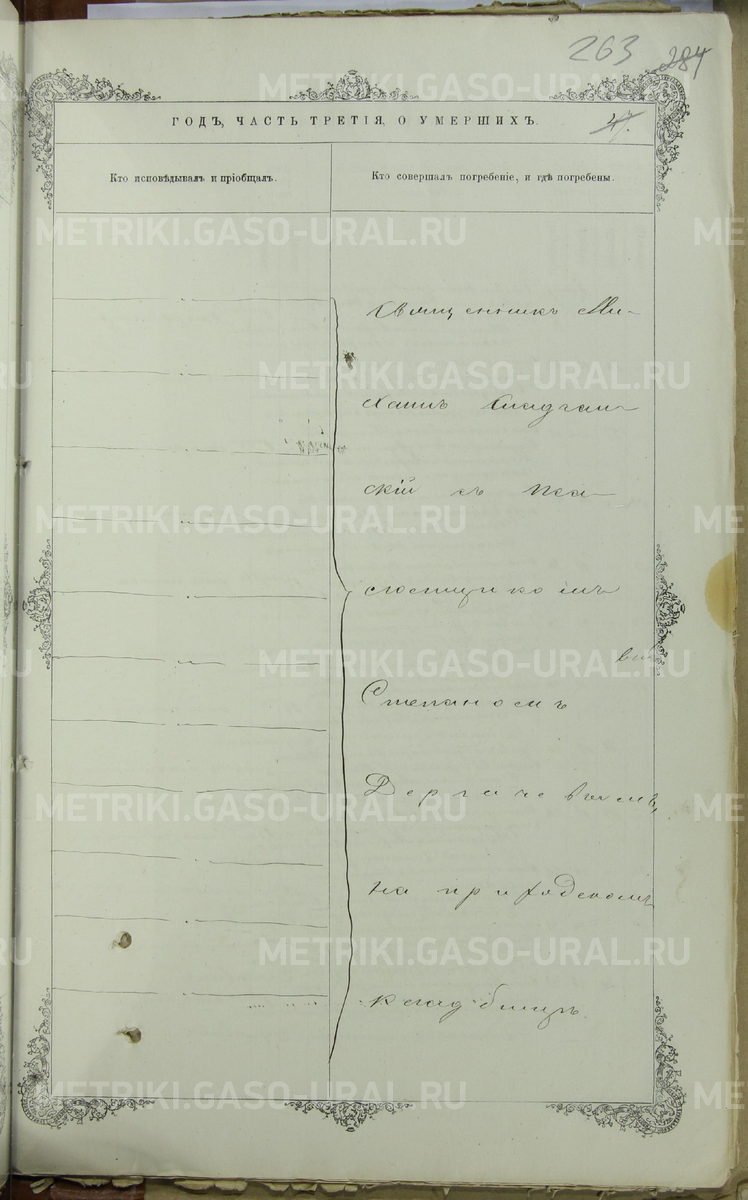 263 284
ГОДЪ, ЧАСТЬ ТРЕТІЯ, О УМЕРШИХЪ. 47.
Кто исповѣдывалъ и пріобщалъ.
Кто совершалъ погребеніе, и гдѣ погребены.
Священникъ Ми-
хаилъ
скій съ Пса-
ломщикомъ
Степаномъ
на приходскомъ
кладбищѣ.
METRIKI.GASO-URAL.RU